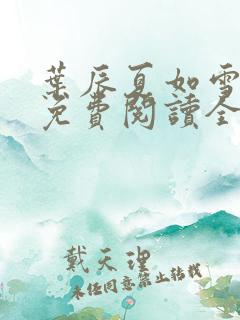 葉辰夏如雪
免費閱讀全
戴天理
未經同意禁止轉載